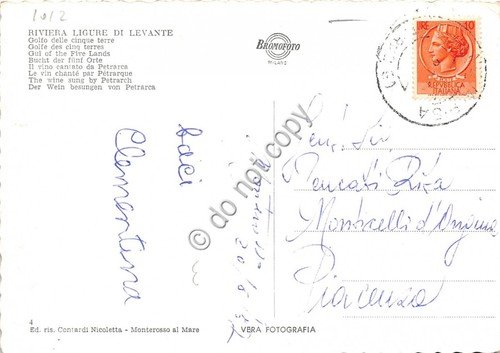 1012
RIVIERA LIGURE DI LEVANTE
Golfo delle cinque terre
Golfe des cinq terres
Gul of the Five Lands
Bucht der fünf Orte
Il vino cantato da Petrarca
Le vin chanté par Pétrarque
The wine sung by Petrarch
Der Wein besungen von Petrarca
BROMOFOTO
MILANO
10
REPVBBLICA
ITALIANA
PISA
baci
Clementina
do not copy
Pencati Rita
Monticelli d'Ongina
Piacenza
4
Ed. ris. Contardi Nicoletta - Monterosso al Mare
VERA FOTOGRAFIA